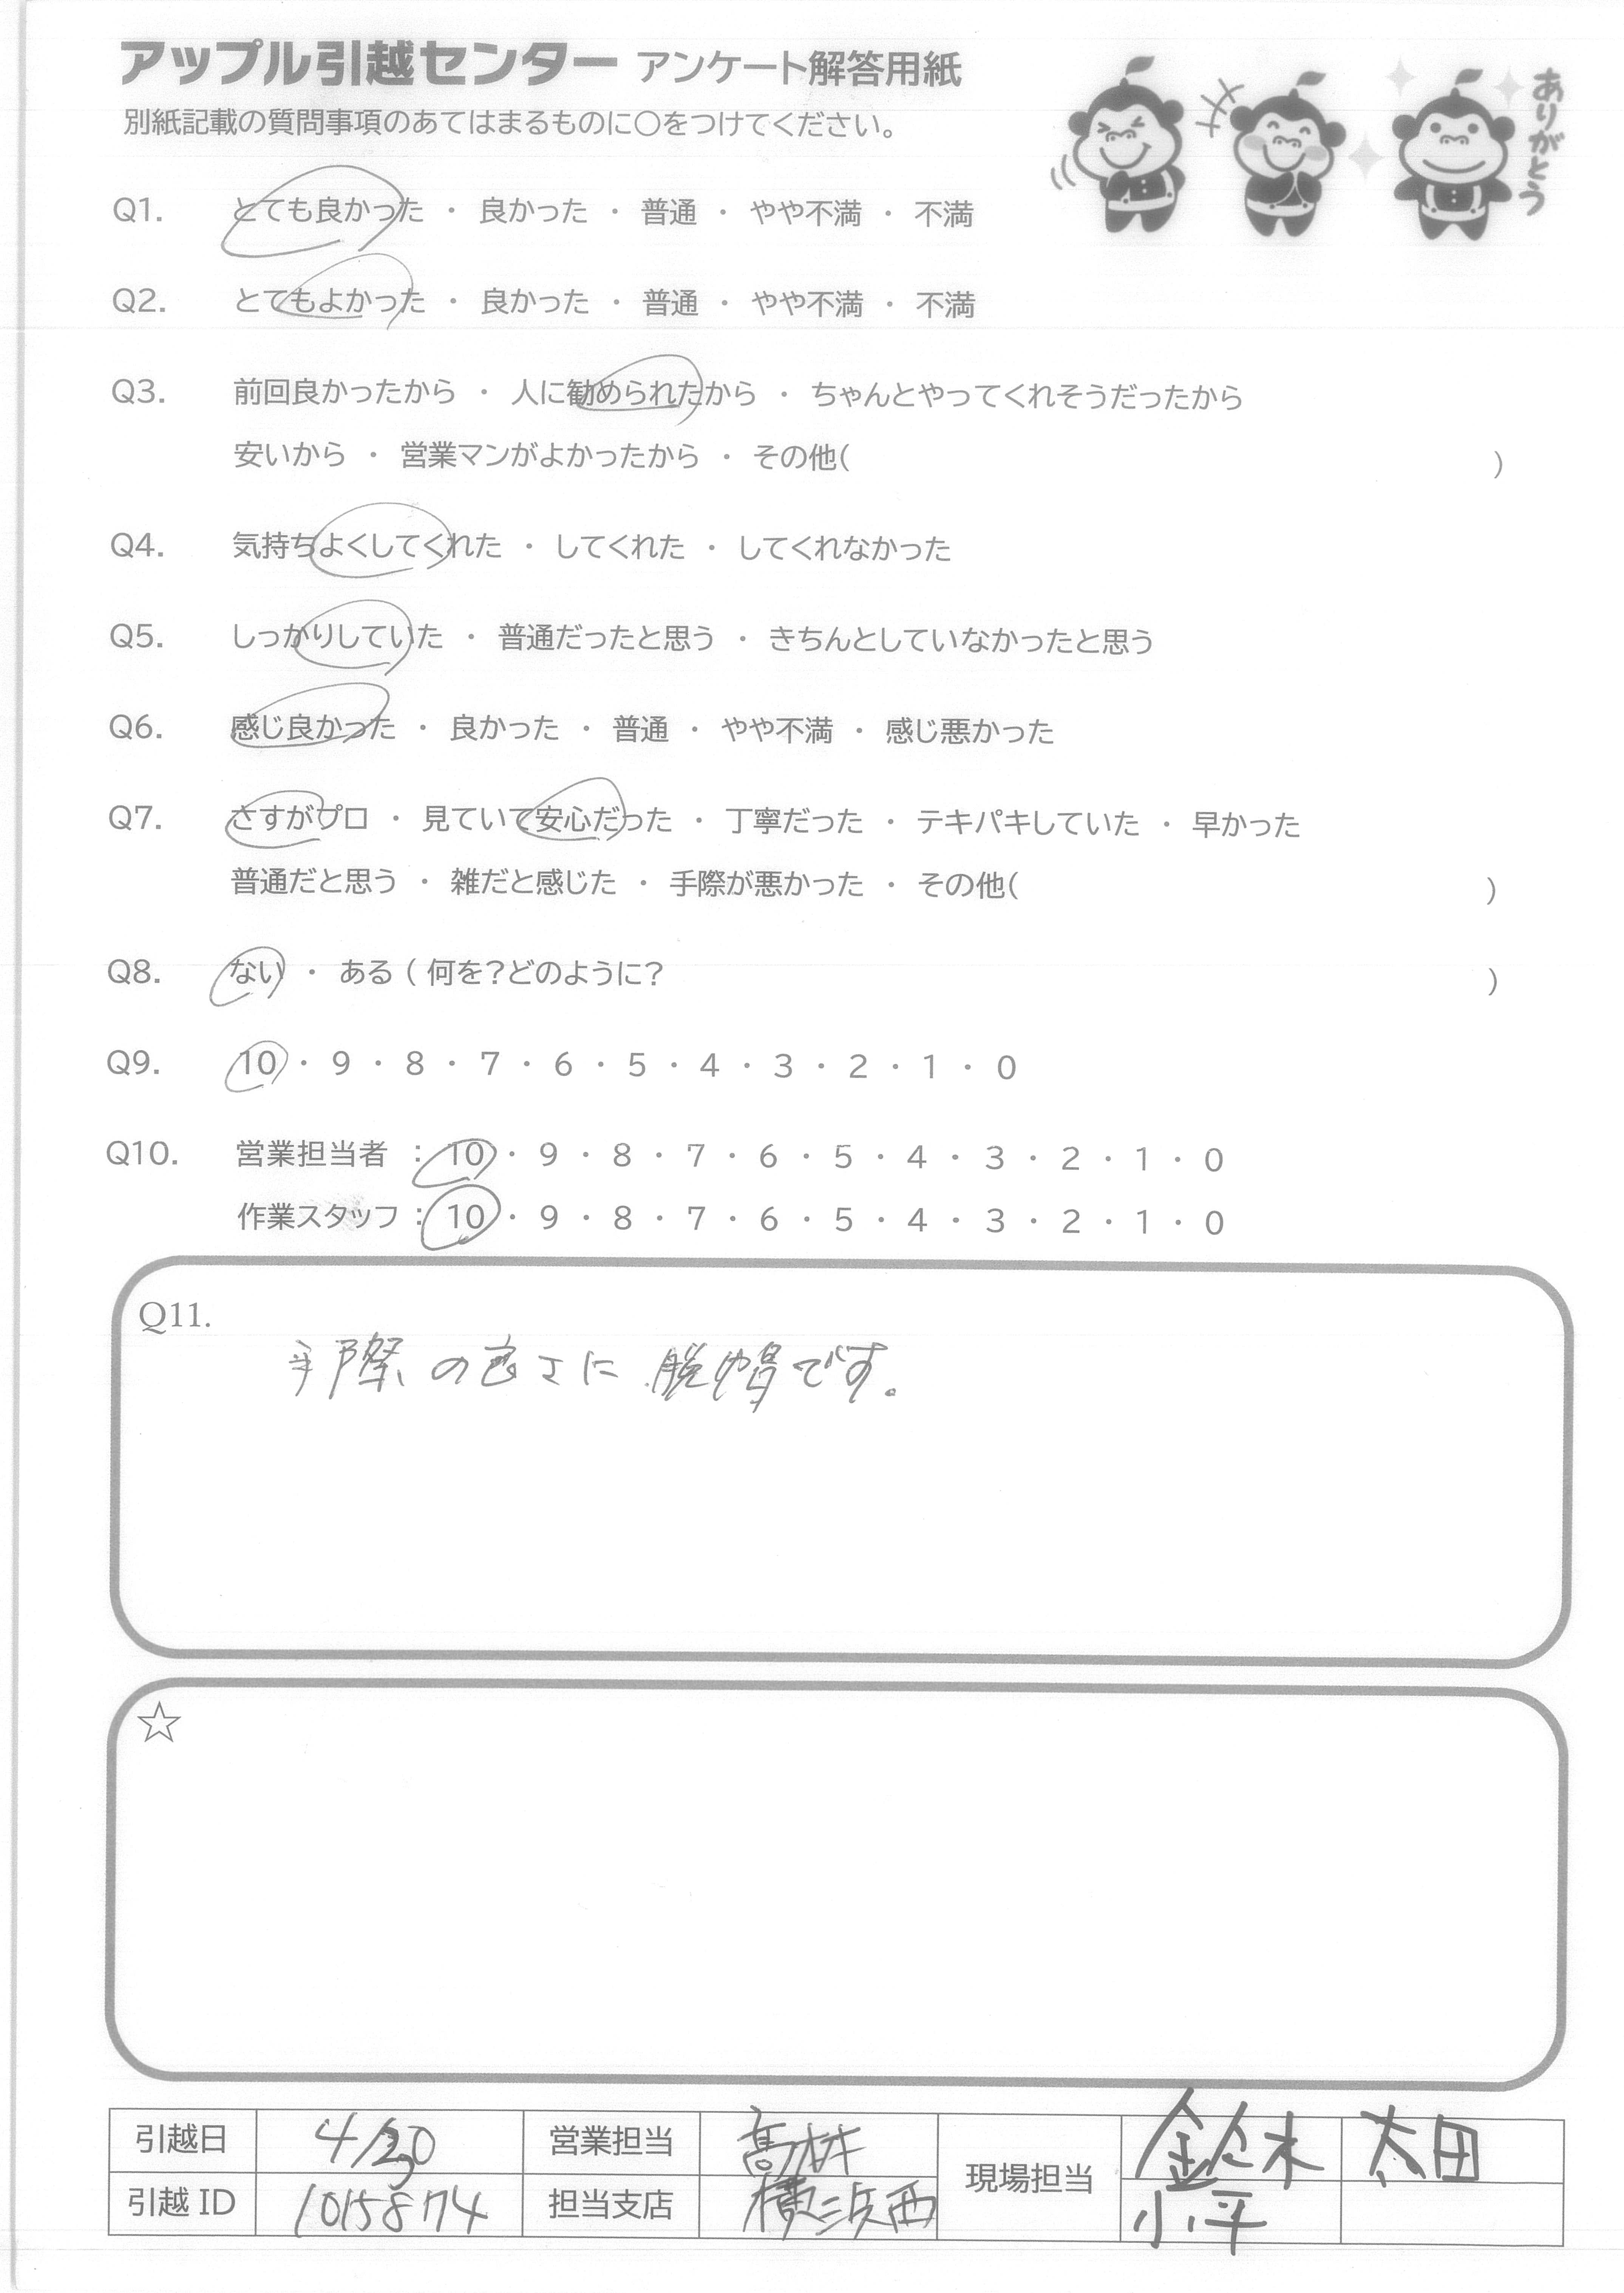 アップル引越センター アンケート解答用紙
別紙記載の質問事項のあてはまるものに○をつけてください。
ありがとう
Q1. とても良かった ・ 良かった ・ 普通 ・ やや不満 ・ 不満
Q2. とてもよかった ・ 良かった ・ 普通 ・ やや不満 ・ 不満
Q3. 前回良かったから ・ 人に勧められたから ・ ちゃんとやってくれそうだったから
安いから ・ 営業マンがよかったから ・ その他( )
Q4. 気持ちよくしてくれた ・ してくれた ・ してくれなかった
Q5. しっかりしていた ・ 普通だったと思う ・ きちんとしていなかったと思う
Q6. 感じ良かった ・ 良かった ・ 普通 ・ やや不満 ・ 感じ悪かった
Q7. さすがプロ ・ 見ていて安心だった ・ 丁寧だった ・ テキパキしていた ・ 早かった
普通だと思う ・ 雑だと感じた ・ 手際が悪かった ・ その他( )
Q8. ない ・ ある ( 何を?どのように? )
Q9. 10 ・ 9 ・ 8 ・ 7 ・ 6 ・ 5 ・ 4 ・ 3 ・ 2 ・ 1 ・ 0
Q10. 営業担当者 : 10 ・ 9 ・ 8 ・ 7 ・ 6 ・ 5 ・ 4 ・ 3 ・ 2 ・ 1 ・ 0
作業スタッフ : 10 ・ 9 ・ 8 ・ 7 ・ 6 ・ 5 ・ 4 ・ 3 ・ 2 ・ 1 ・ 0
Q11.
手際の良さに脱帽です。
☆
引越日 4/30 営業担当 髙林 現場担当 鈴木 太田
引越ID 1015874 担当支店 横浜西 小平